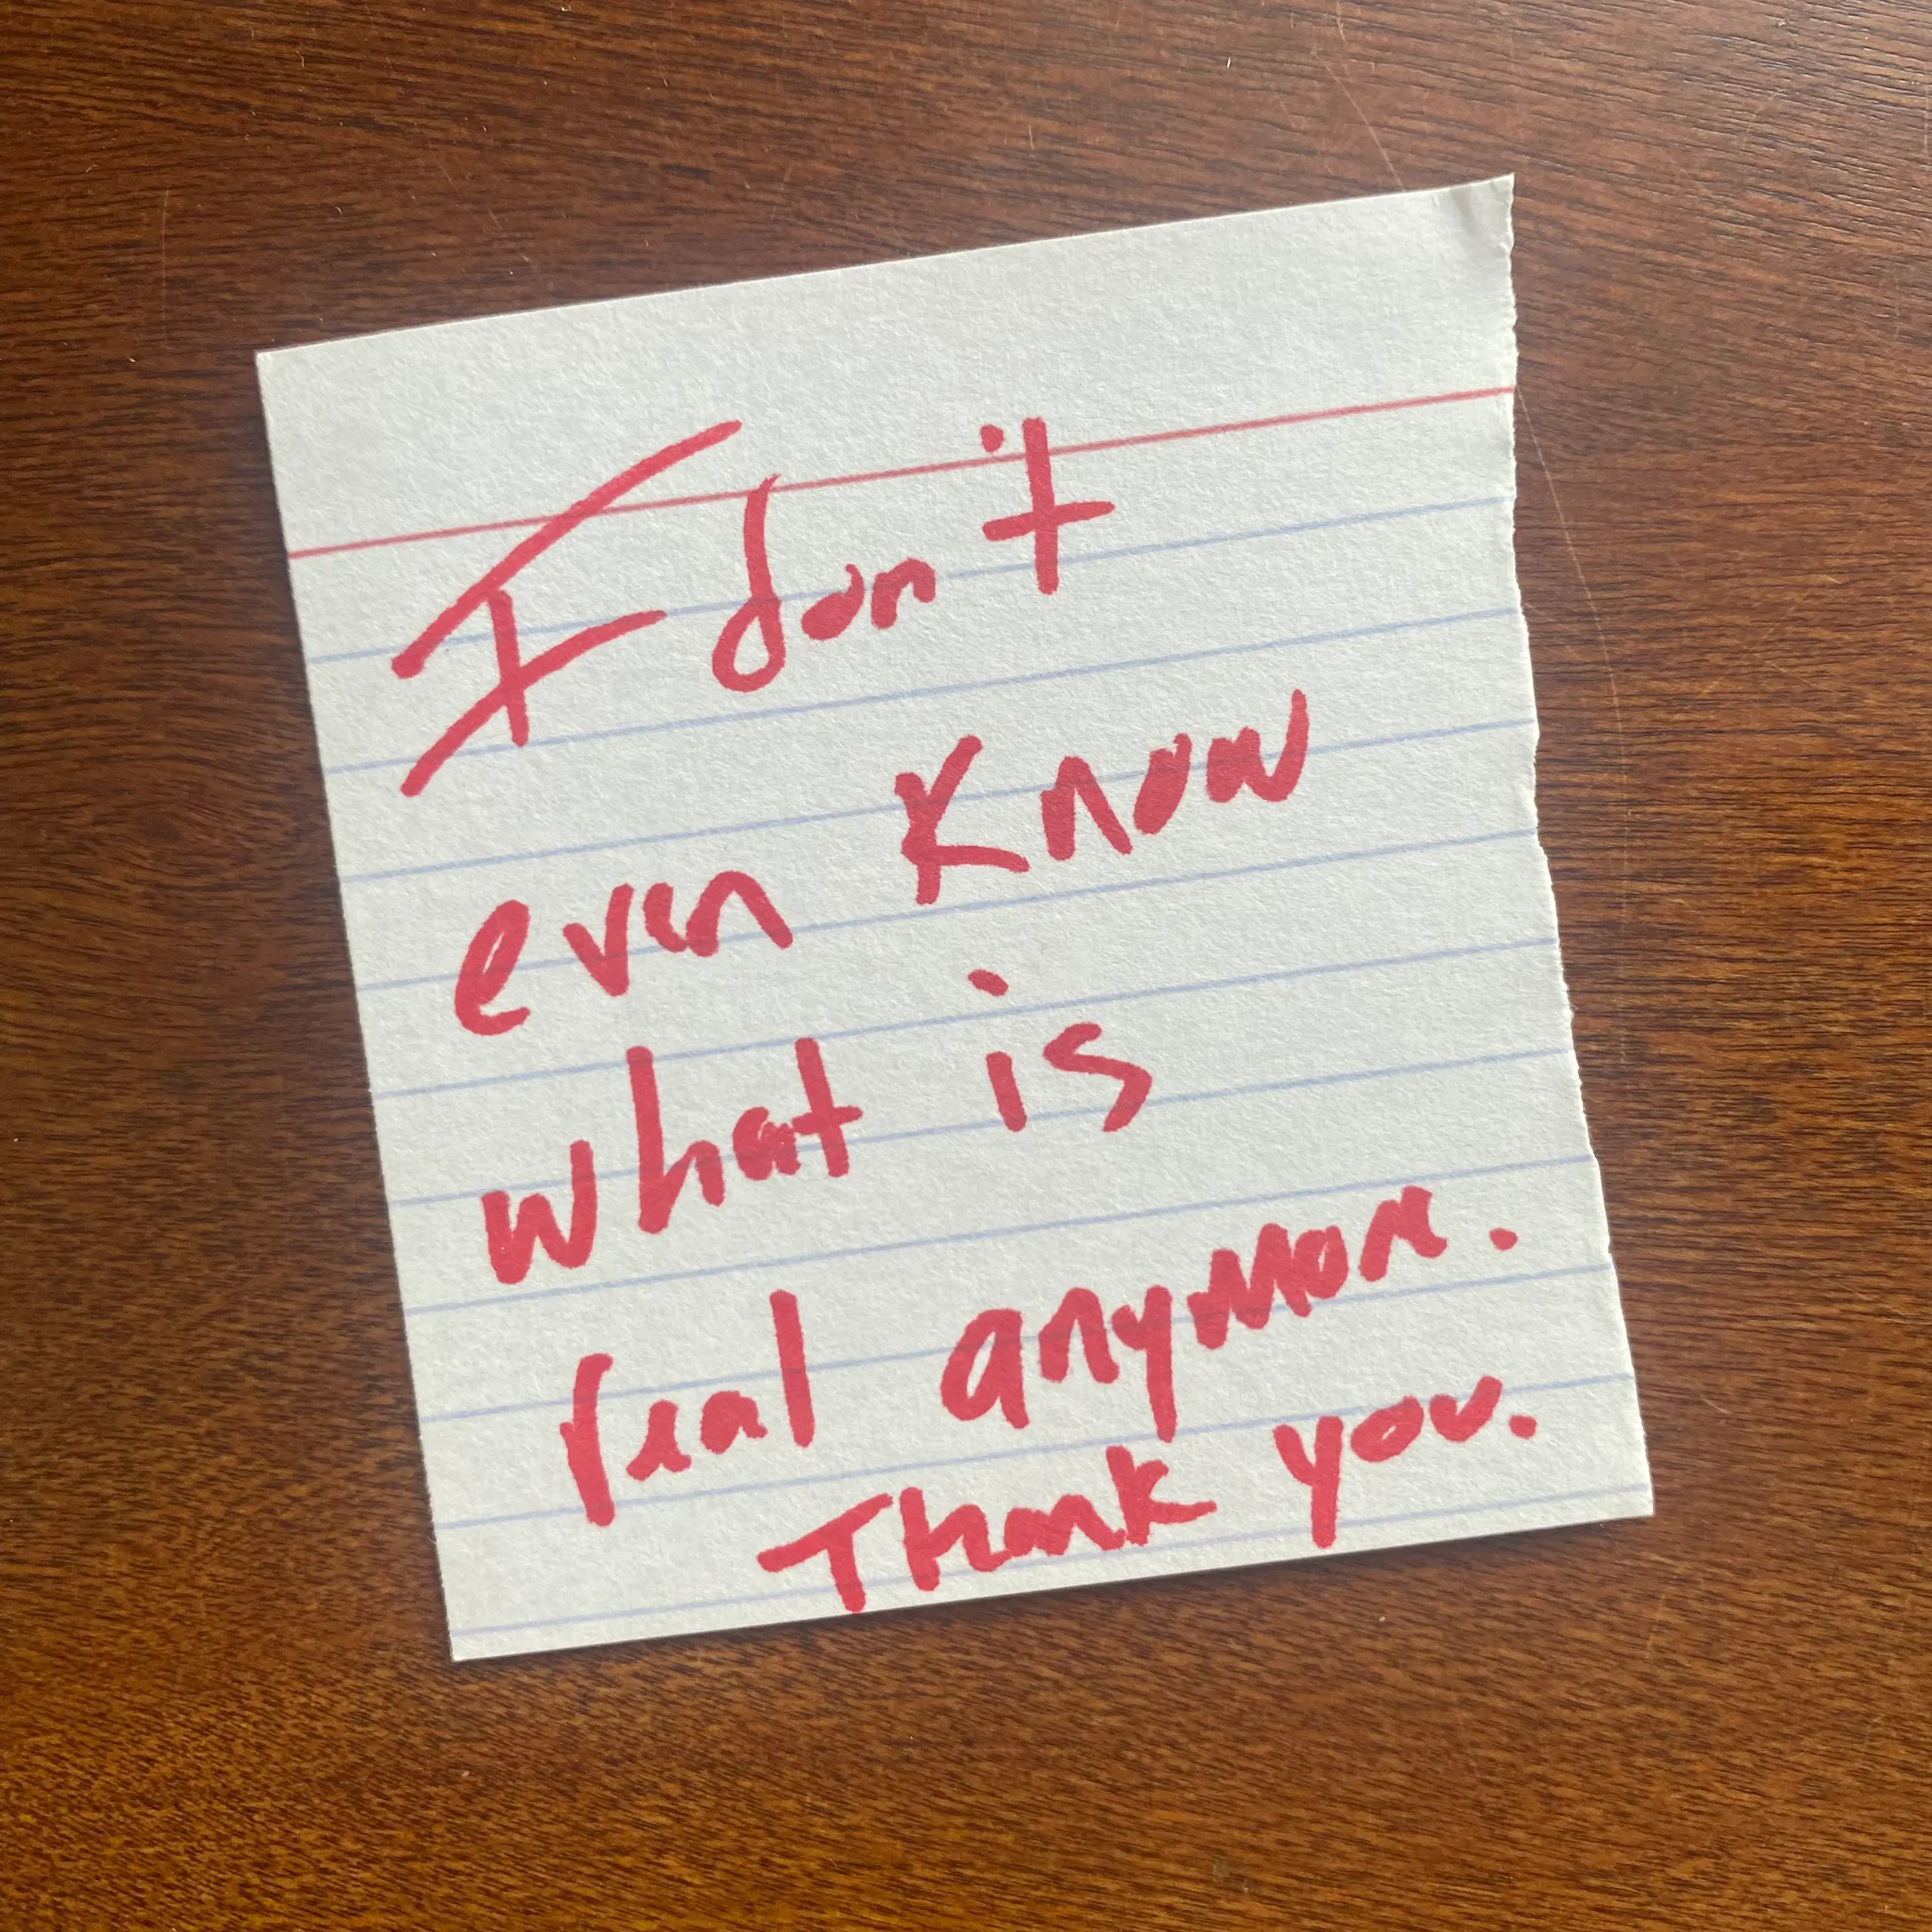 I don't
even know
what is
real anymore.
Thank you.